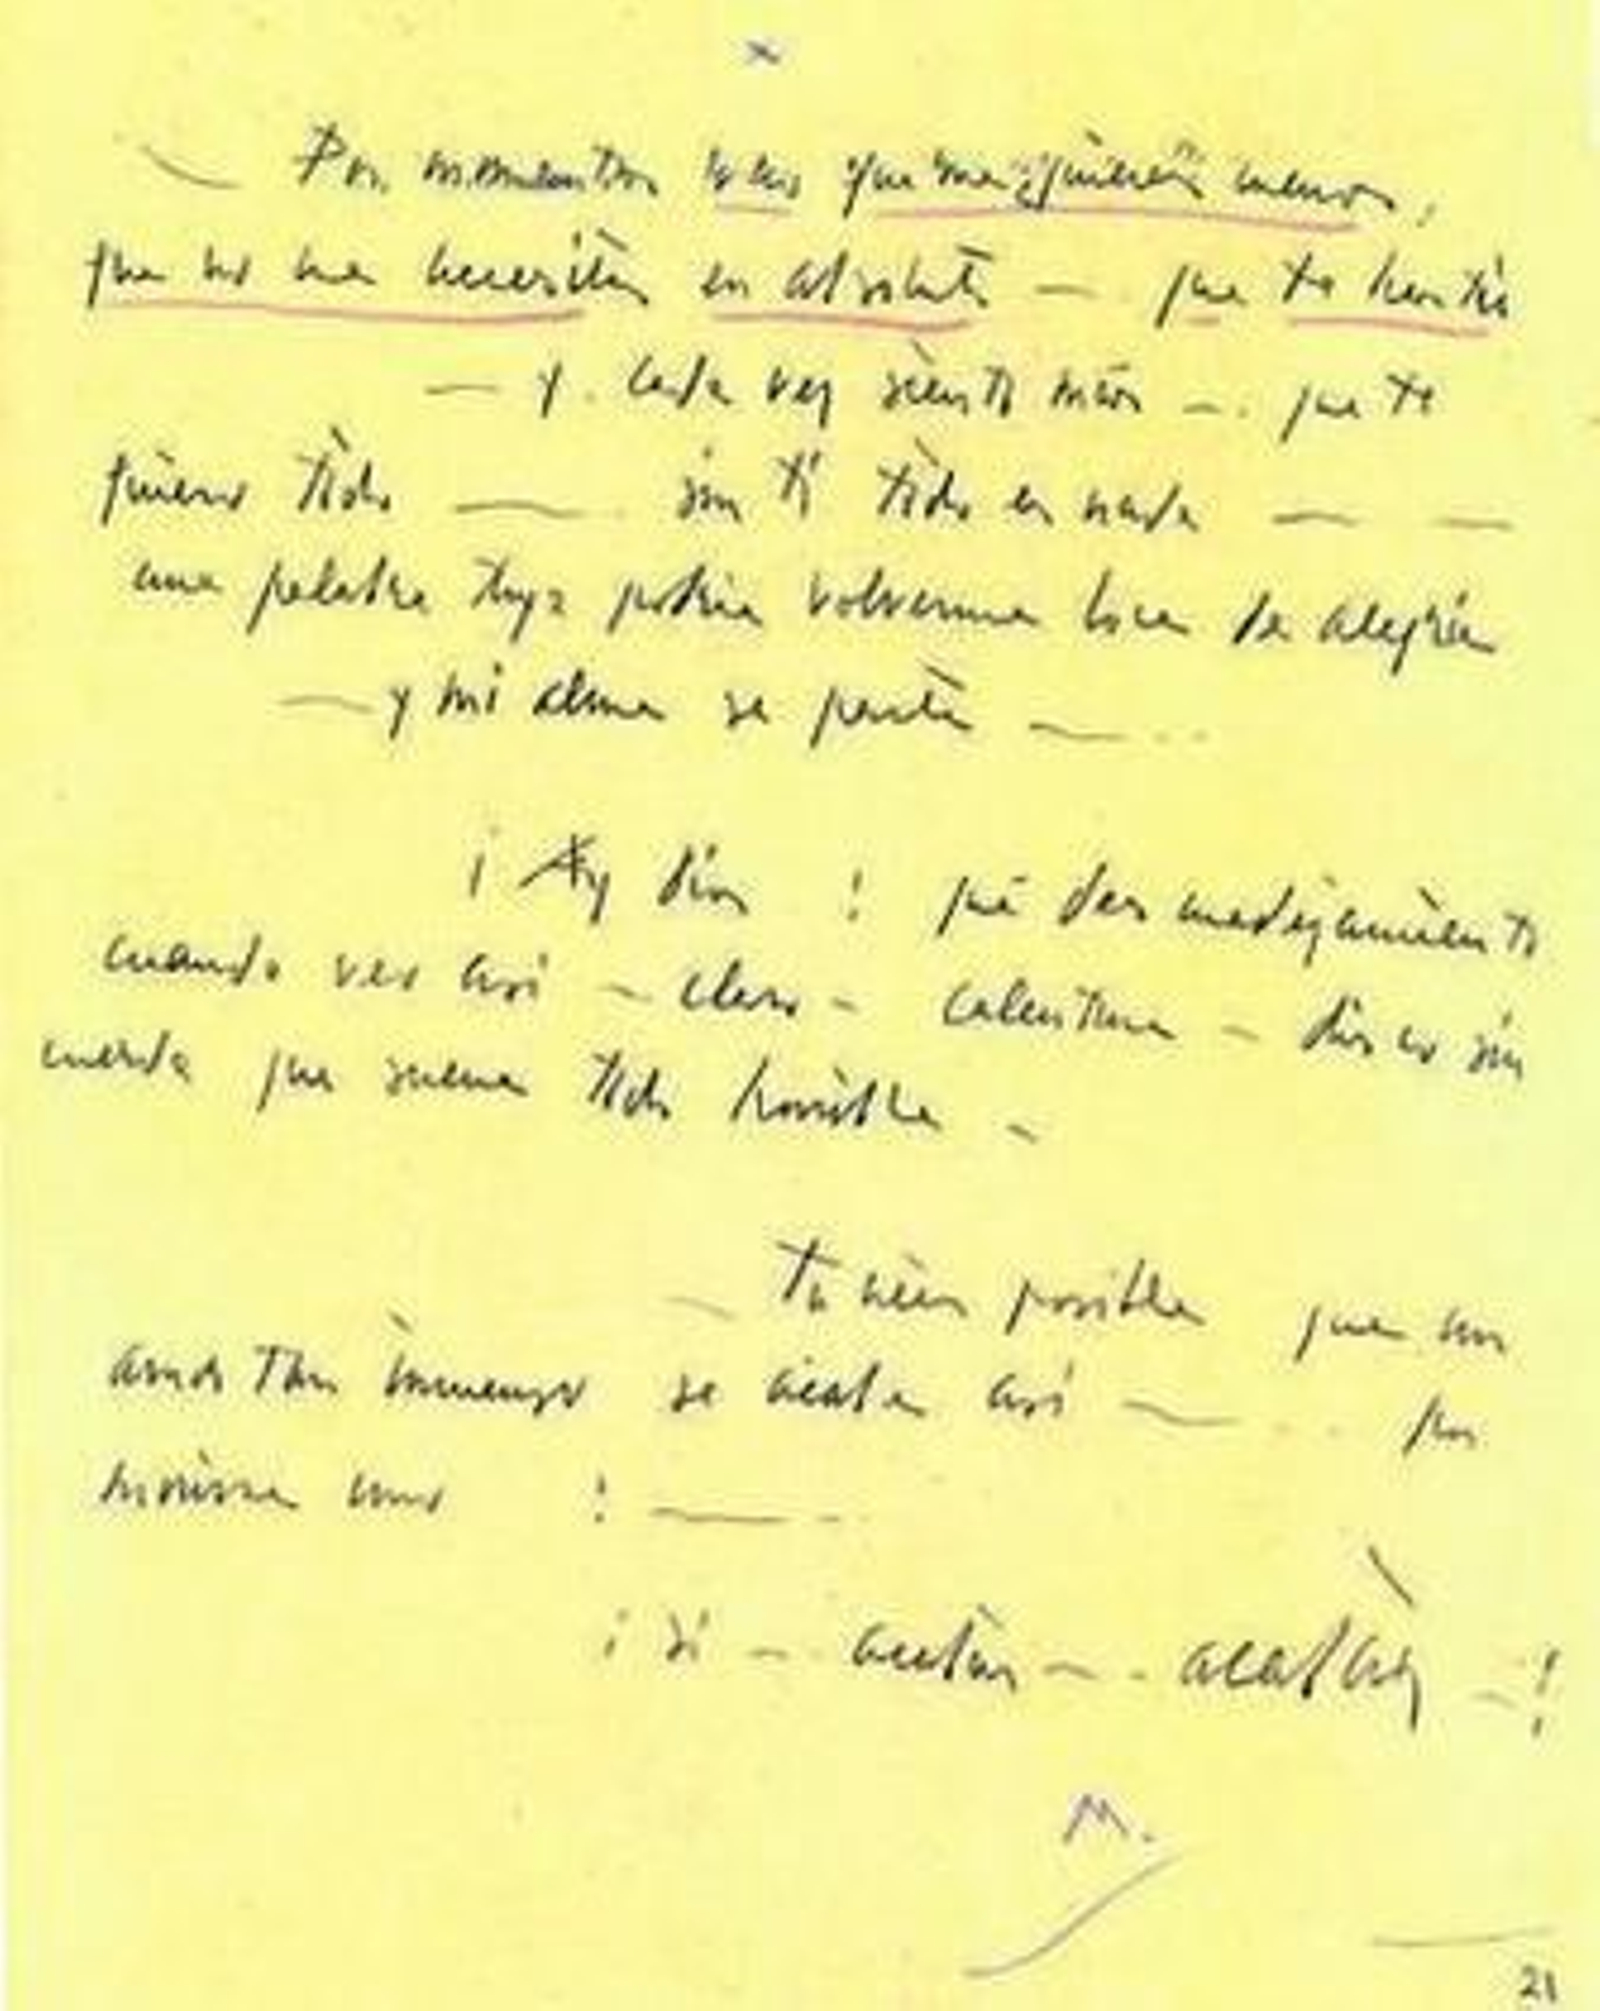 ×
— Por momentos veo que me quieres menos,
que no me necesitas en absoluto — que te
— y cada vez siento más — que te
quiero todo — sin ti todo es nada — —
una palabra tuya podría volverme loca de alegría
— y mi alma se partía — ..
¡Ay dios! qué desmadejamiento
cuando veo así – claro – calentura – dios no sin
cuerda que suena todo horrible –
— posible que un
amor tan inmenso se acabe así — .. por
morirse uno ! — ..
¡ si – – !
M.
21